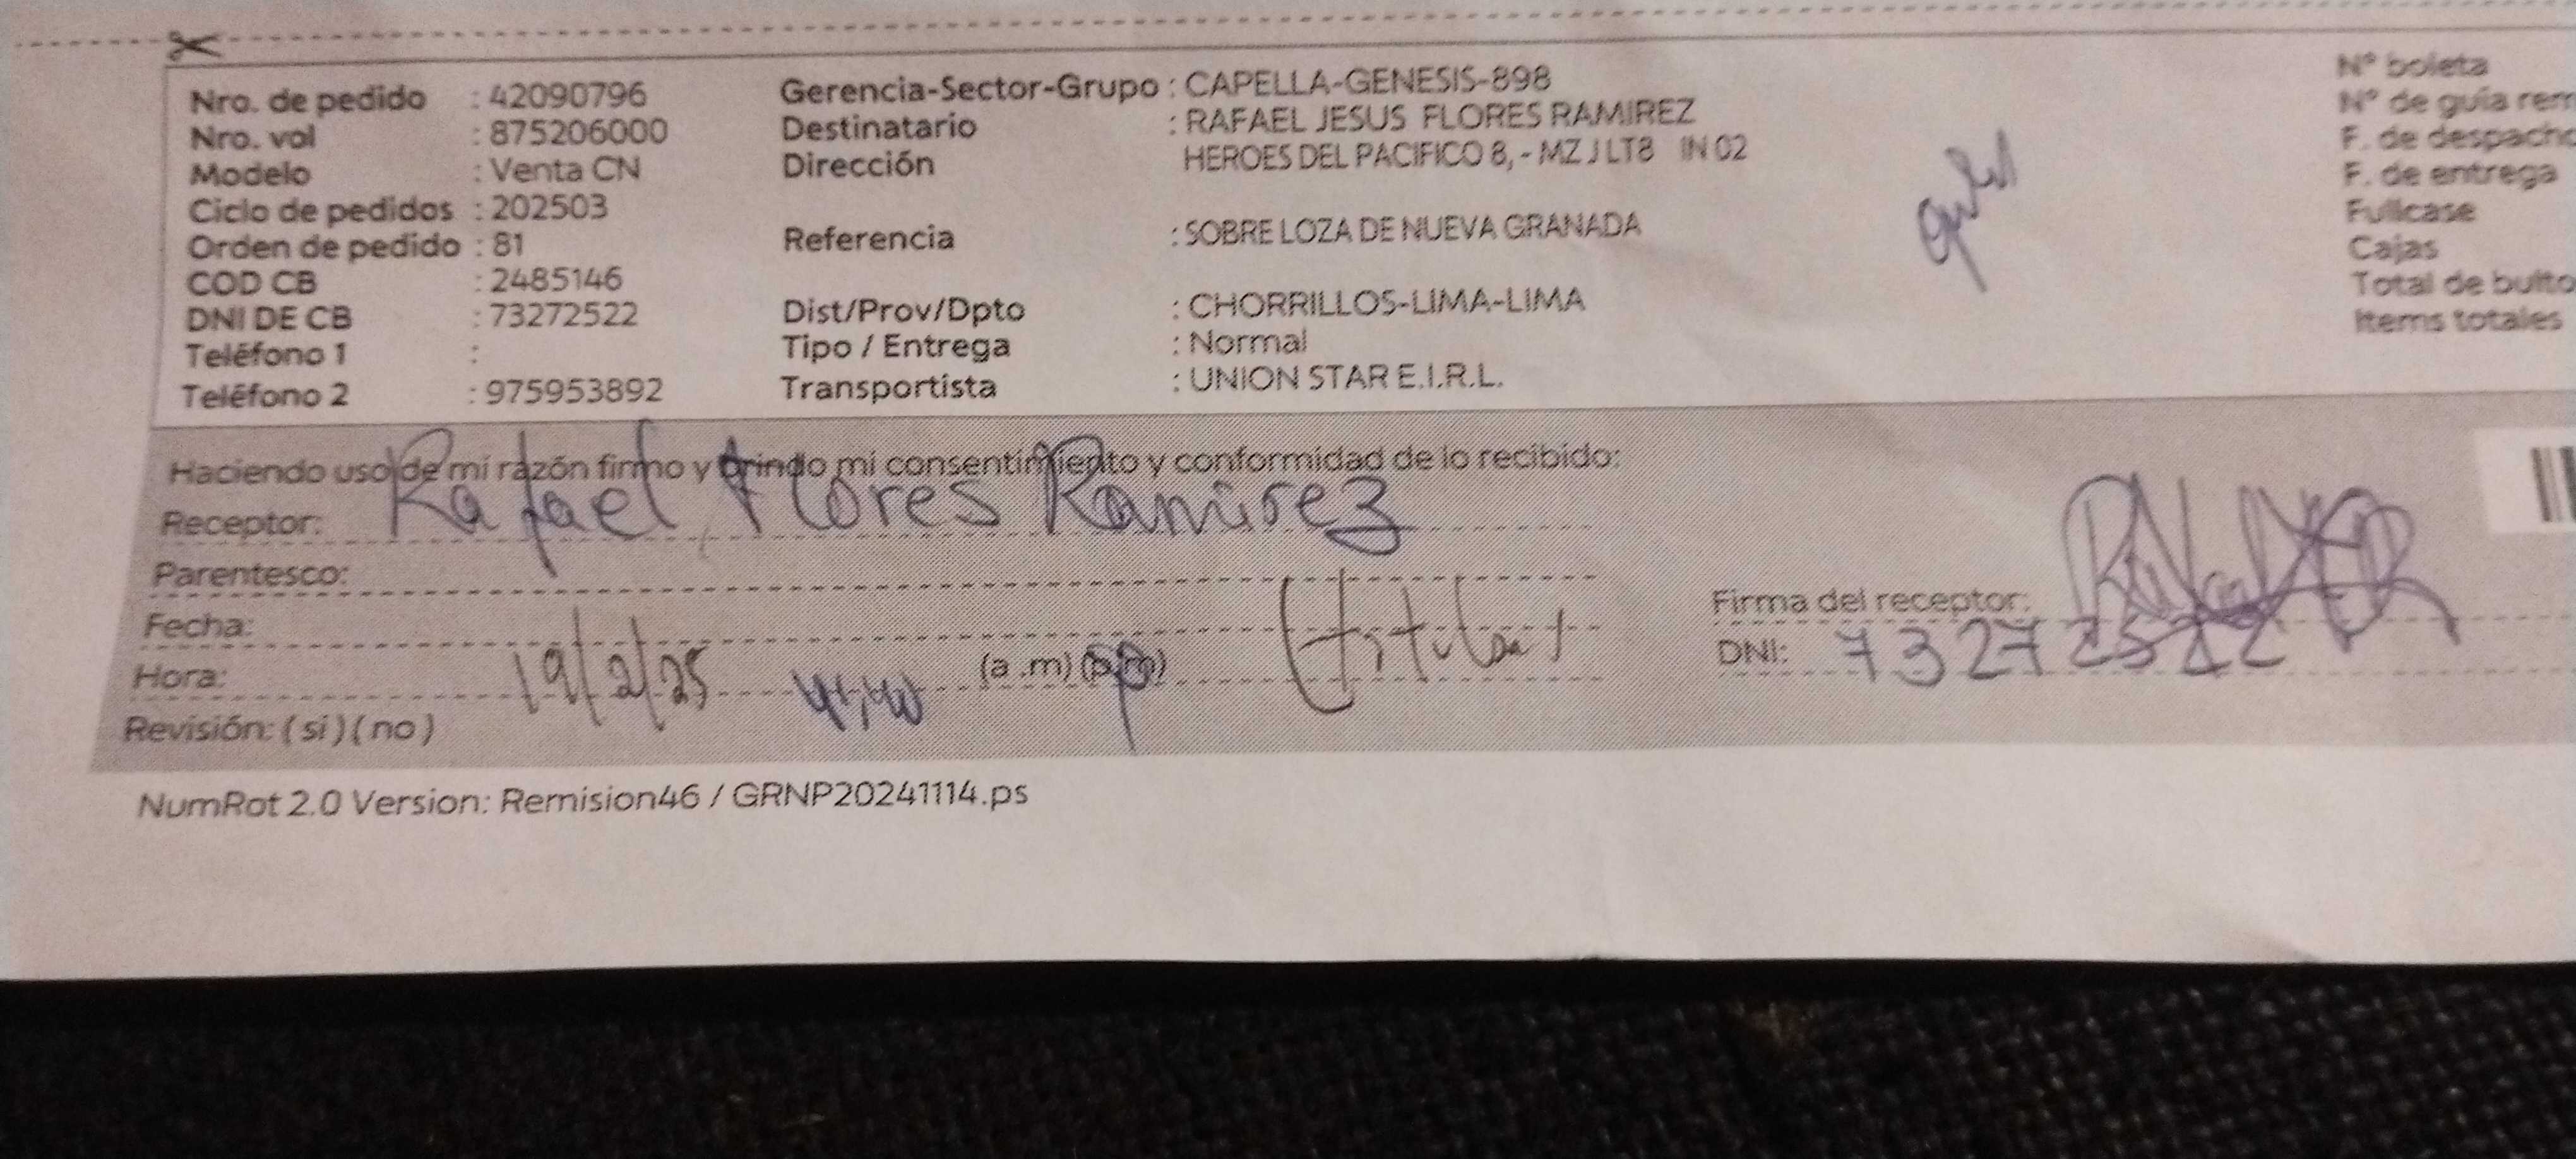 Nro. de pedido : 42090796
Nro. vol : 875206000
Modelo : Venta CN
Ciclo de pedidos : 202503
Orden de pedido : 81
COD CB : 2485146
DNI DE CB : 73272522
Teléfono 1 :
Teléfono 2 : 975953892
Gerencia-Sector-Grupo : CAPELLA-GENESIS-898
Destinatario : RAFAEL JESUS FLORES RAMIREZ
Dirección HEROES DEL PACIFICO 8, - MZ J LT8 IN 02
Referencia : SOBRE LOZA DE NUEVA GRANADA
Dist/Prov/Dpto : CHORRILLOS-LIMA-LIMA
Tipo / Entrega : Normal
Transportista : UNION STAR E.I.R.L.
N° boleta
N° de guía rem
F. de despacho
F. de entrega
Fullcase
Cajas
Total de bulto
Items totales
Haciendo uso de mi razón firmo y brindo mi consentimiento y conformidad de lo recibido:
Receptor: Rafael Flores Ramirez
Parentesco:
Fecha:
Hora: 19/2/25 (a .m) (p.m) titular
Revisión: ( si ) ( no )
Firma del receptor:
DNI: 73272522
NumRot 2.0 Version: Remision46 / GRNP20241114.ps